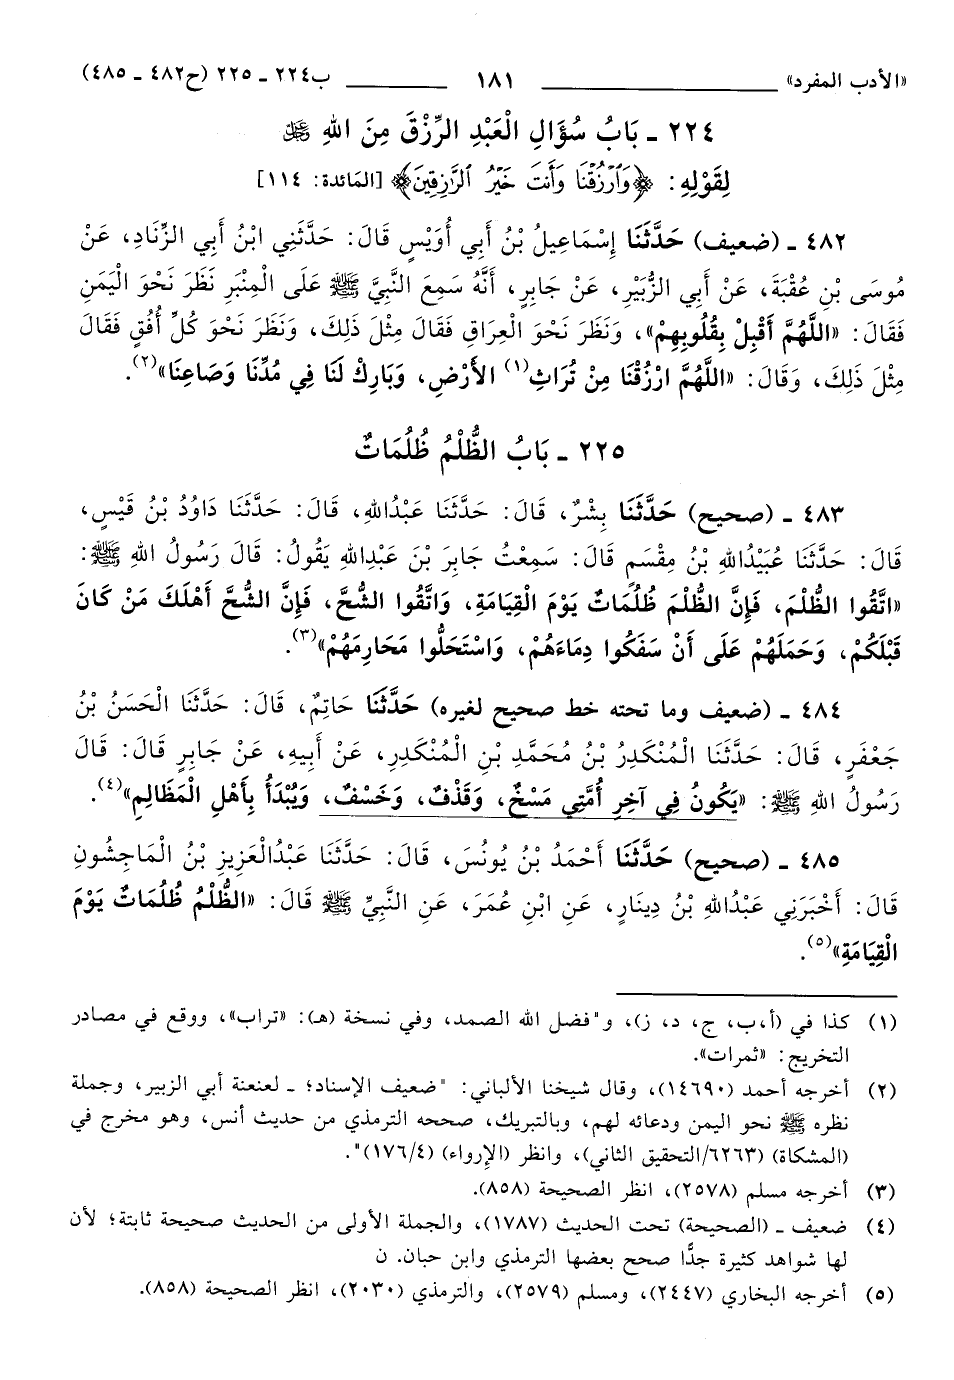 «الأدب المفرد» ١٨١ ب٢٢٤ ـ ٢٢٥ (ح٤٨٢ ـ ٤٨٥)
٢٢٤ ـ بَابُ سُؤَالِ الْعَبْدِ الرِّزْقَ مِنَ اللهِ ﷿
لِقَوْلِهِ: ﴿وَٱرْزُقْنَا وَأَنتَ خَيْرُ ٱلرَّازِقِينَ﴾ [المائدة: ١١٤]
٤٨٢ ـ (ضعيف) حَدَّثَنَا إِسْمَاعِيلُ بْنُ أَبِي أُوَيْسٍ قَالَ: حَدَّثَنِي ابْنُ أَبِي الزِّنَادِ، عَنْ
مُوسَى بْنِ عُقْبَةَ، عَنْ أَبِي الزُّبَيْرِ، عَنْ جَابِرٍ، أَنَّهُ سَمِعَ النَّبِيَّ ﷺ عَلَى الْمِنْبَرِ نَظَرَ نَحْوَ الْيَمَنِ
فَقَالَ: «اللَّهُمَّ أَقْبِلْ بِقُلُوبِهِمْ»، وَنَظَرَ نَحْوَ الْعِرَاقِ فَقَالَ مِثْلَ ذَلِكَ، وَنَظَرَ نَحْوَ كُلِّ أُفُقٍ فَقَالَ
مِثْلَ ذَلِكَ، وَقَالَ: «اللَّهُمَّ ارْزُقْنَا مِنْ تُرَاثِ(١) الأَرْضِ، وَبَارِكْ لَنَا فِي مُدِّنَا وَصَاعِنَا»(٢).
٢٢٥ ـ بَابُ الظُّلْمُ ظُلُمَاتٌ
٤٨٣ ـ (صحيح) حَدَّثَنَا بِشْرٌ، قَالَ: حَدَّثَنَا عَبْدُاللهِ، قَالَ: حَدَّثَنَا دَاوُدُ بْنُ قَيْسٍ،
قَالَ: حَدَّثَنَا عُبَيْدُاللهِ بْنُ مِقْسَمٍ قَالَ: سَمِعْتُ جَابِرَ بْنَ عَبْدِاللهِ يَقُولُ: قَالَ رَسُولُ اللهِ ﷺ:
«اتَّقُوا الظُّلْمَ، فَإِنَّ الظُّلْمَ ظُلُمَاتٌ يَوْمَ الْقِيَامَةِ، وَاتَّقُوا الشُّحَّ، فَإِنَّ الشُّحَّ أَهْلَكَ مَنْ كَانَ
قَبْلَكُمْ، وَحَمَلَهُمْ عَلَى أَنْ سَفَكُوا دِمَاءَهُمْ، وَاسْتَحَلُّوا مَحَارِمَهُمْ»(٣).
٤٨٤ ـ (ضعيف وما تحته خط صحيح لغيره) حَدَّثَنَا حَاتِمٌ، قَالَ: حَدَّثَنَا الْحَسَنُ بْنُ
جَعْفَرٍ، قَالَ: حَدَّثَنَا الْمُنْكَدِرُ بْنُ مُحَمَّدِ بْنِ الْمُنْكَدِرِ، عَنْ أَبِيهِ، عَنْ جَابِرٍ قَالَ: قَالَ
رَسُولُ اللهِ ﷺ: «يَكُونُ فِي آخِرِ أُمَّتِي مَسْخٌ، وَقَذْفٌ، وَخَسْفٌ، وَيُبْدَأُ بِأَهْلِ الْمَظَالِمِ»(٤).
٤٨٥ ـ (صحيح) حَدَّثَنَا أَحْمَدُ بْنُ يُونُسَ، قَالَ: حَدَّثَنَا عَبْدُالْعَزِيزِ بْنُ الْمَاجِشُونِ
قَالَ: أَخْبَرَنِي عَبْدُاللهِ بْنُ دِينَارٍ، عَنِ ابْنِ عُمَرَ، عَنِ النَّبِيِّ ﷺ قَالَ: «الظُّلْمُ ظُلُمَاتٌ يَوْمَ
الْقِيَامَةِ»(٥).
(١) كذا في (أ،ب، ج، د، ز)، و"فضل الله الصمد، وفي نسخة (هـ): «تراب»، ووقع في مصادر
التخريج: «ثمرات».
(٢) أخرجه أحمد (١٤٦٩٠)، وقال شيخنا الألباني: "ضعيف الإسناد؛ ـ لعنعنة أبي الزبير، وجملة
نظره ﷺ نحو اليمن ودعائه لهم، وبالتبريك، صححه الترمذي من حديث أنس، وهو مخرج في
(المشكاة) (٦٢٦٣/التحقيق الثاني)، وانظر (الإرواء) (١٧٦/٤)".
(٣) أخرجه مسلم (٢٥٧٨)، انظر الصحيحة (٨٥٨).
(٤) ضعيف ـ (الصحيحة) تحت الحديث (١٧٨٧)، والجملة الأولى من الحديث صحيحة ثابتة؛ لأن
لها شواهد كثيرة جدًّا صحح بعضها الترمذي وابن حبان. ن
(٥) أخرجه البخاري (٢٤٤٧)، ومسلم (٢٥٧٩)، والترمذي (٢٠٣٠)، انظر الصحيحة (٨٥٨).